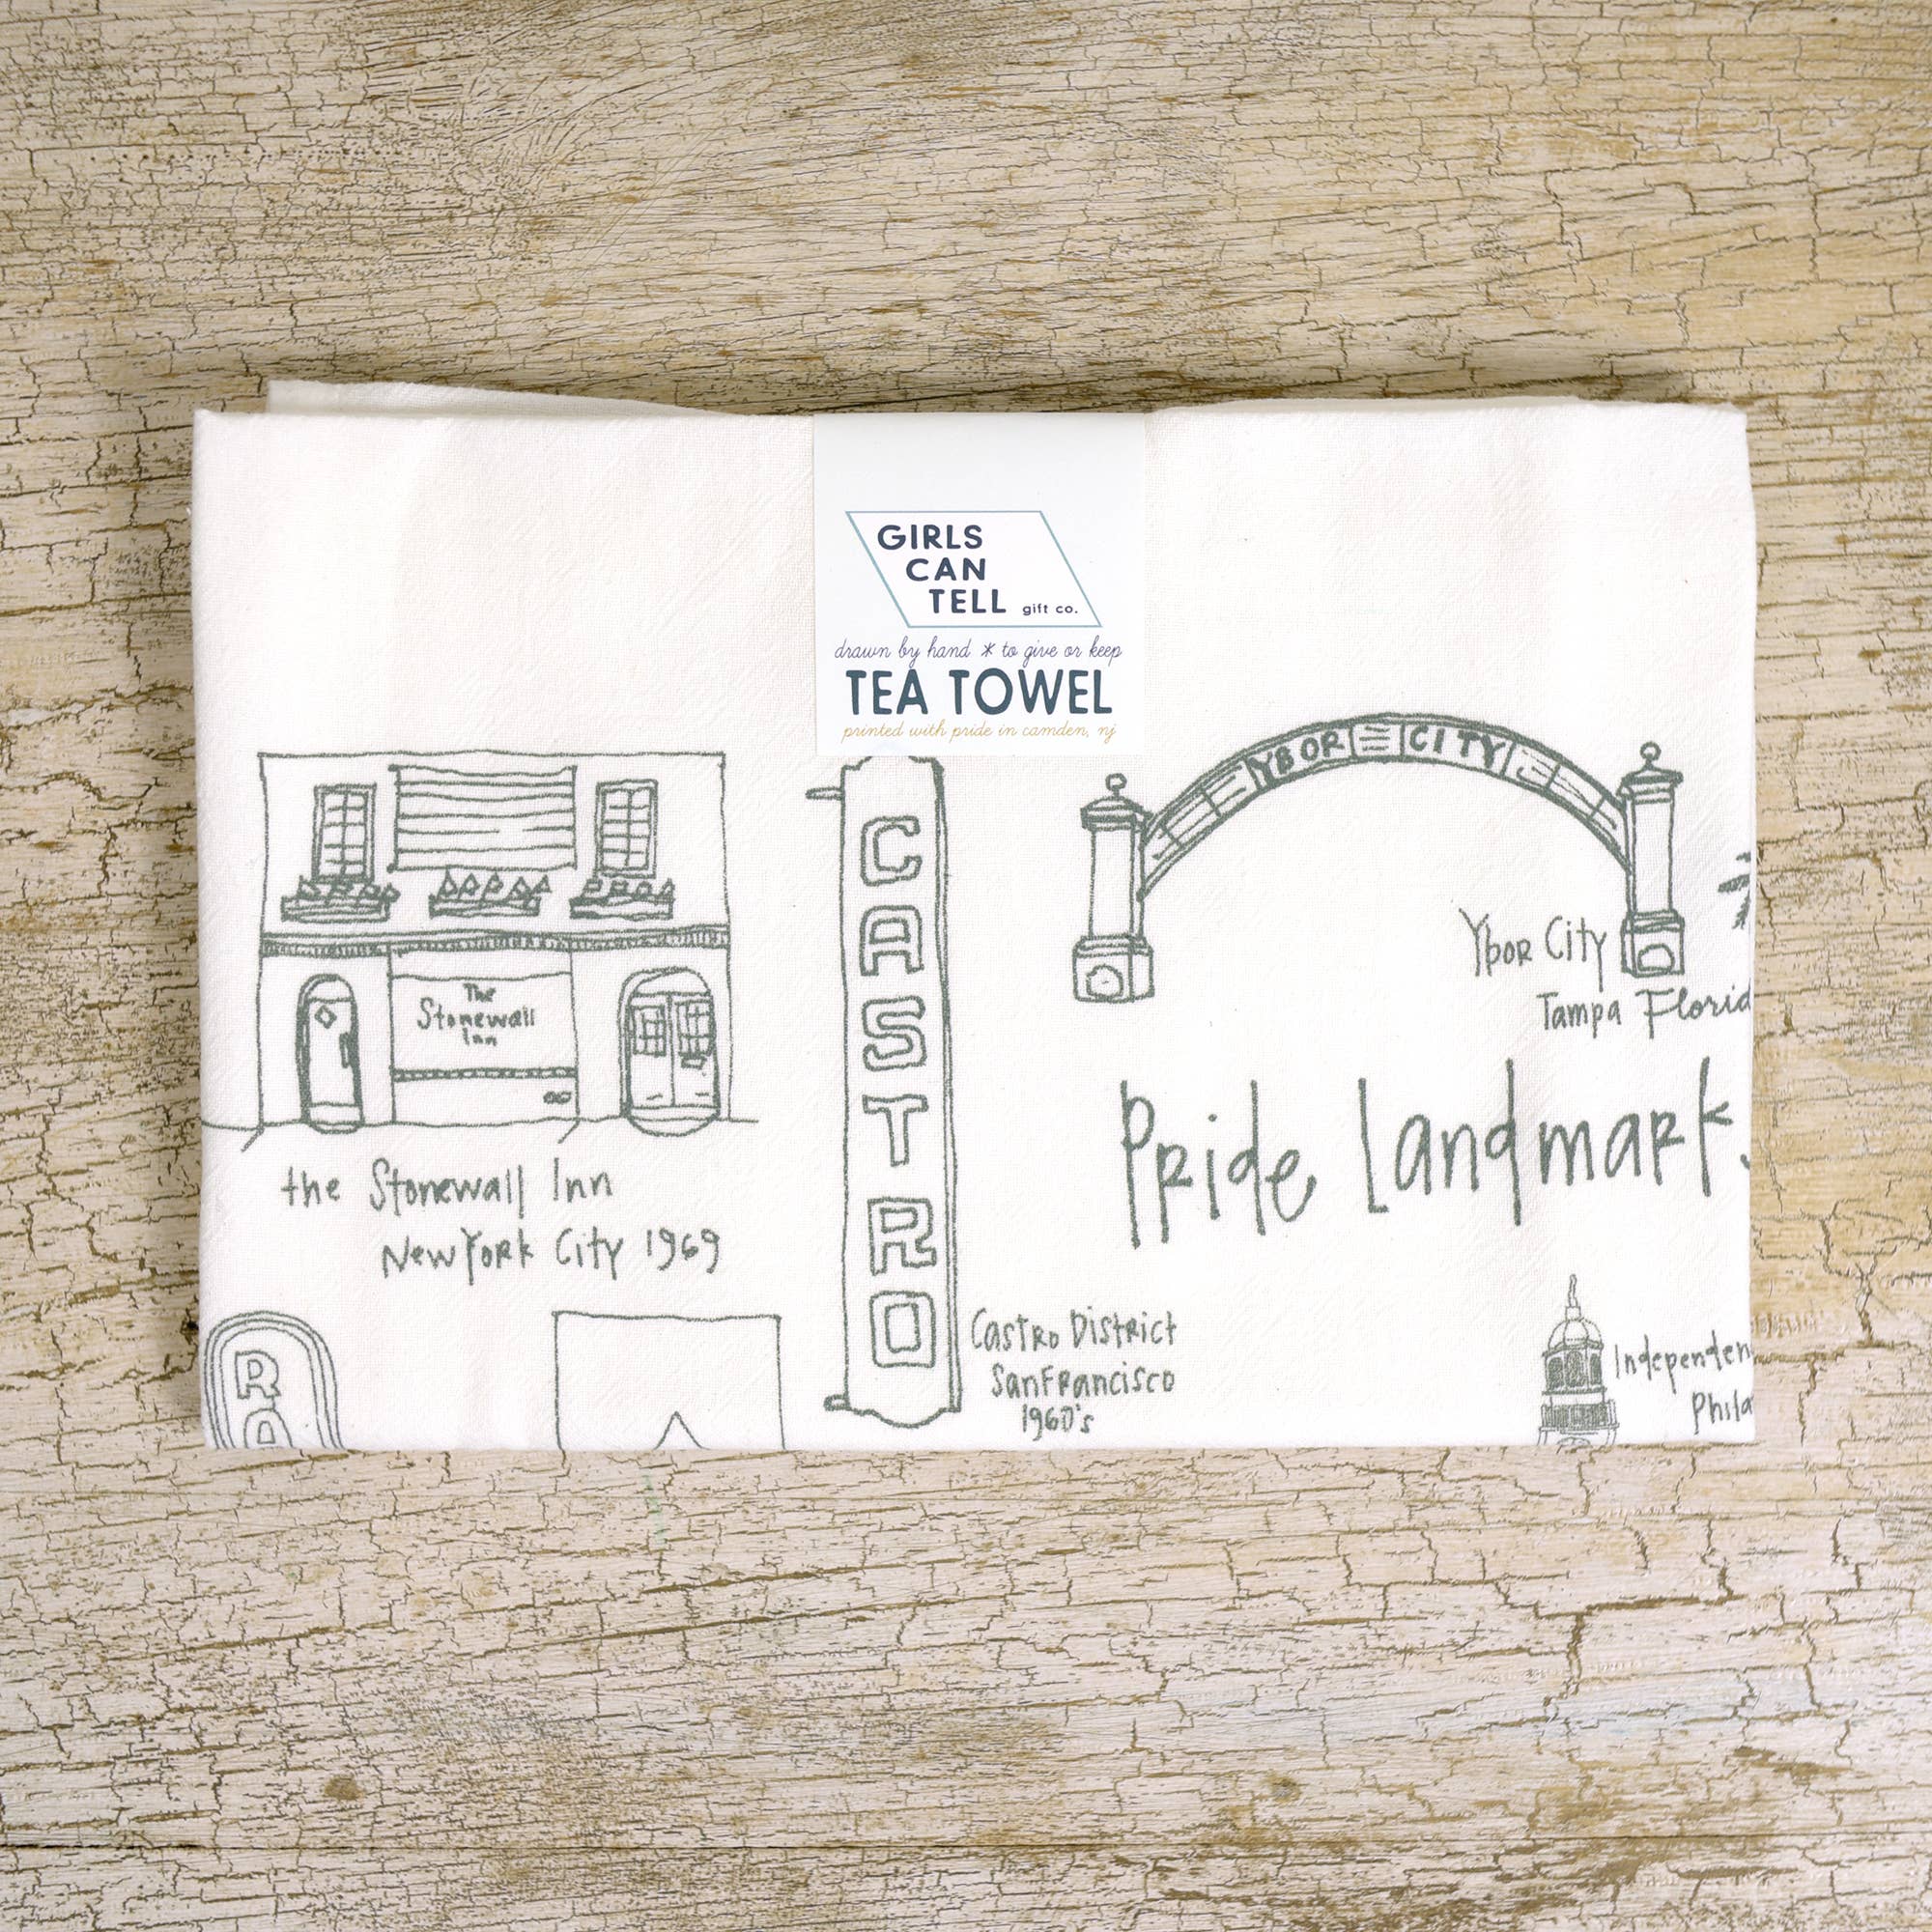 GIRLS
CAN
TELL gift co.
drawn by hand * to give or keep
TEA TOWEL
printed with pride in camden, nj
YBOR CITY
The
Stonewall
Inn
the Stonewall Inn
New York City 1969
CASTRO
Castro District
San Francisco
1960's
Ybor City
Tampa Florid
Pride Landmark
Independen
Phila
RA